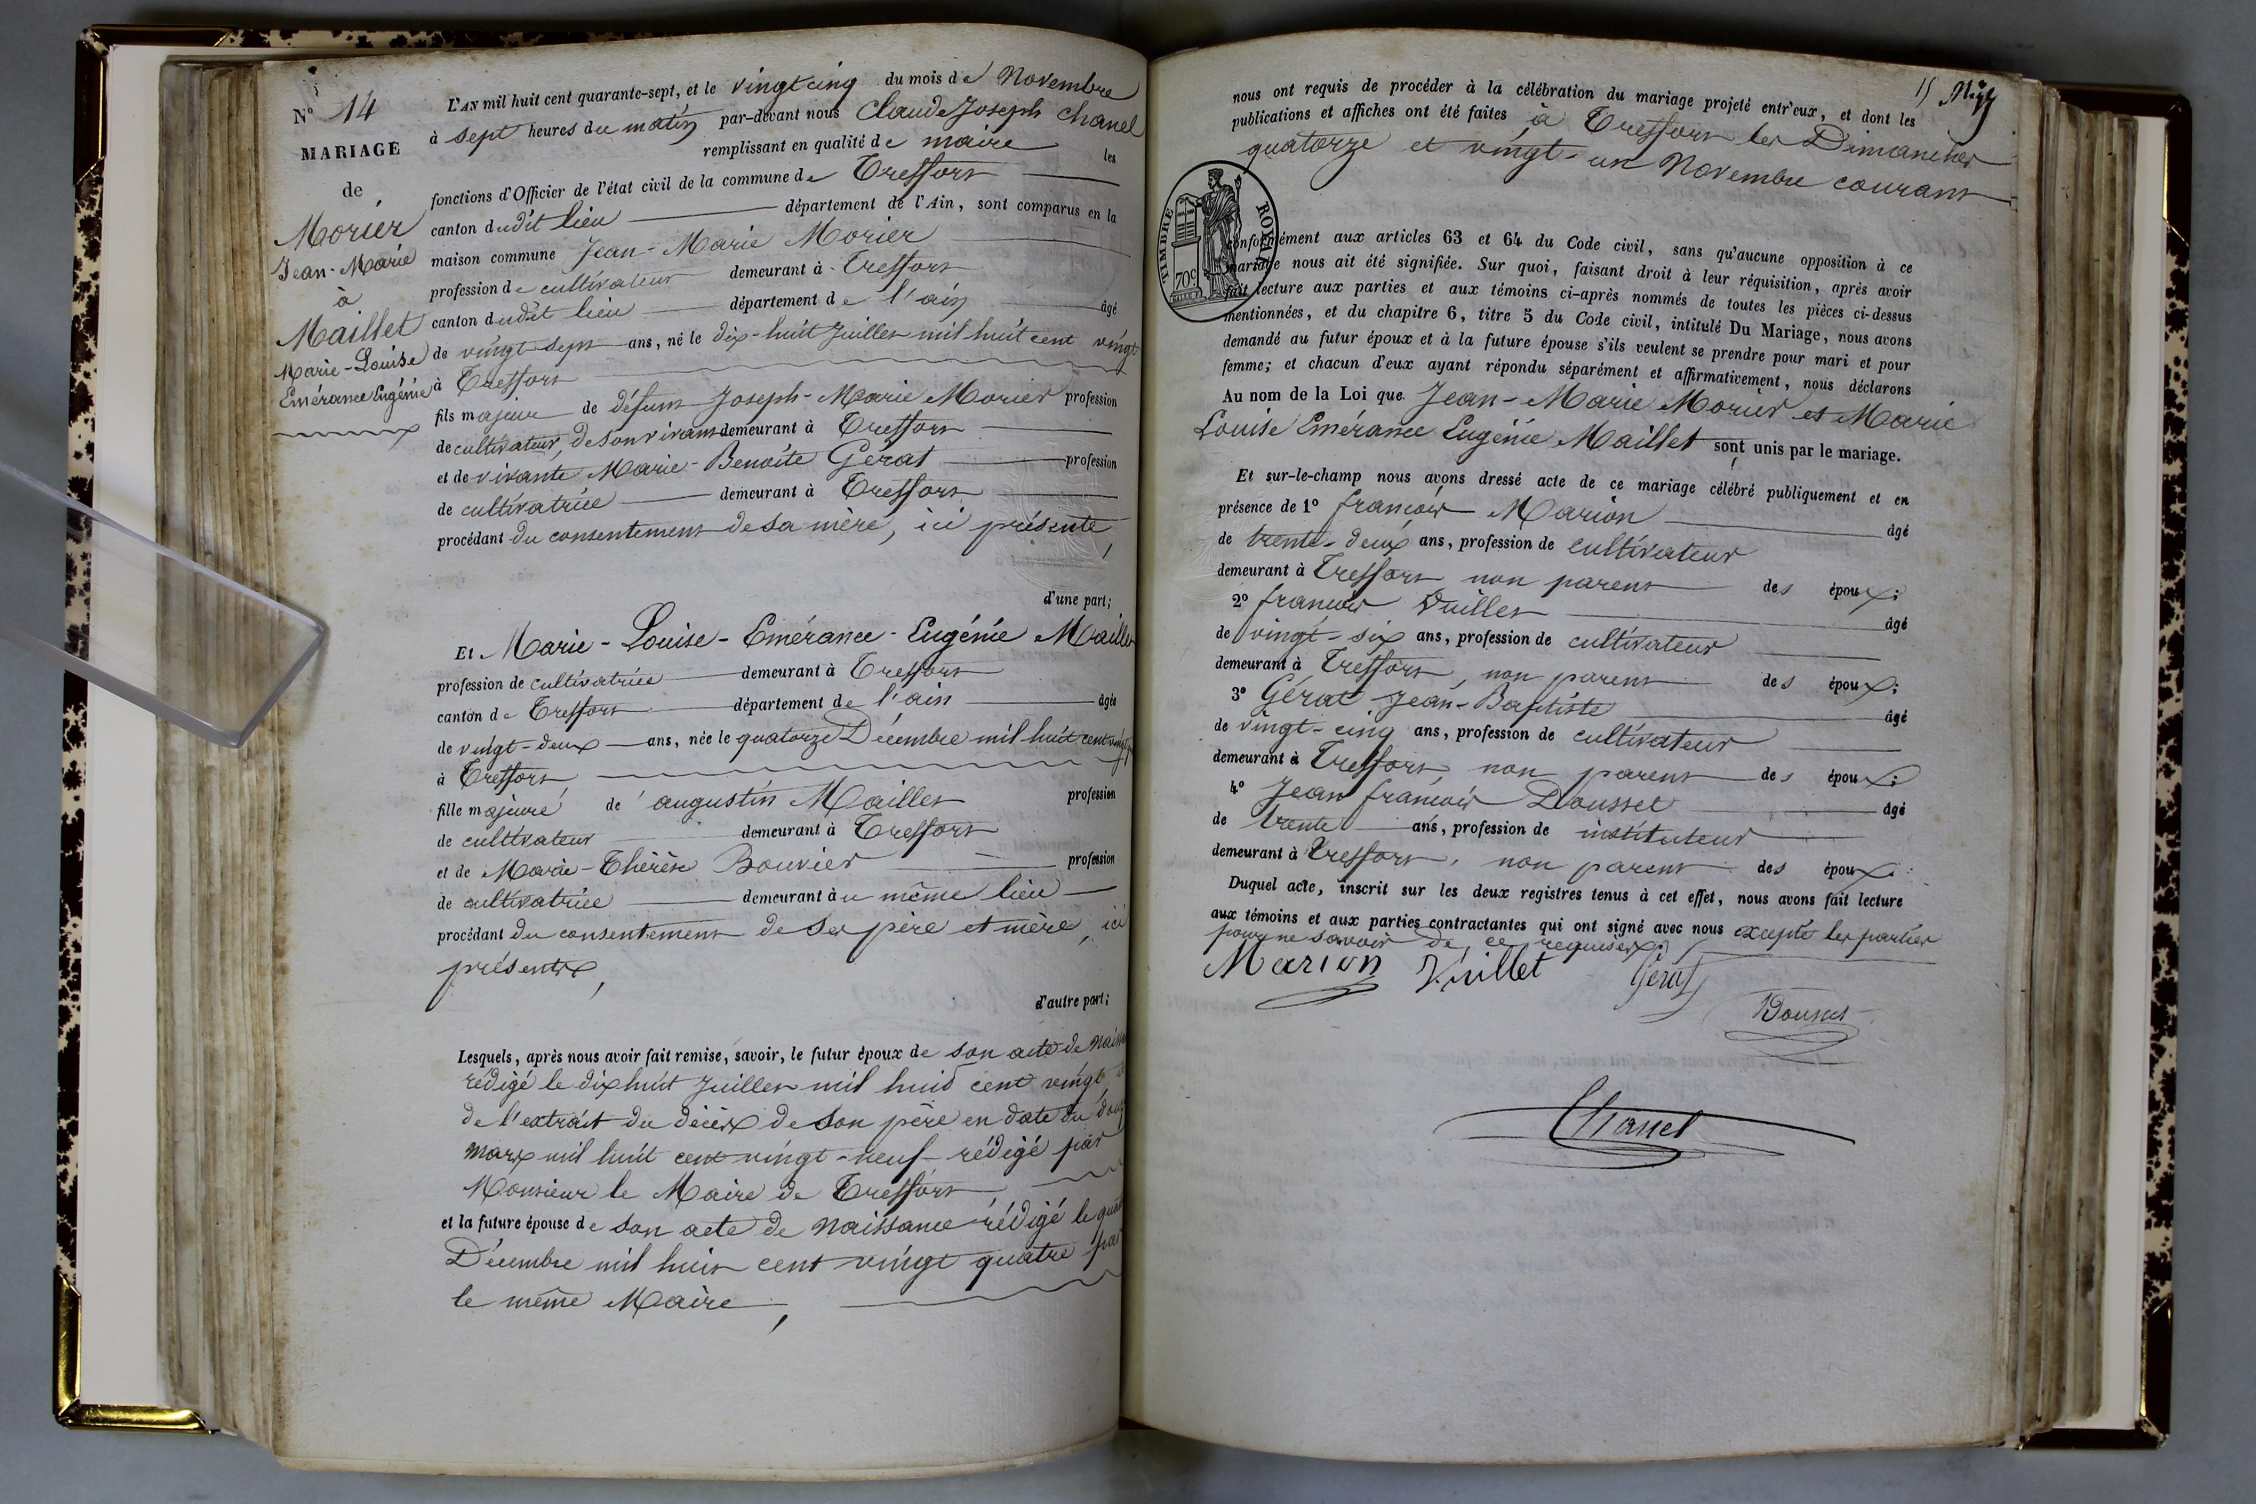 N° 14
MARIAGE
de
Morier
Jean-Marie
à
Maillet
Marie-Louise
Emérance Eugénie
L'AN mil huit cent quarante-sept, et le vingt cinq du mois de Novembre
à sept heures du matin par-devant nous Claude Joseph Chanel
remplissant en qualité de maire les
fonctions d'Officier de l'état civil de la commune de Treffort
canton dudit lieu département de l'Ain, sont comparus en la
maison commune Jean-Marie Morier
profession de cultivateur demeurant à Treffort
canton dudit lieu département de l'ain âgé
de vingt-sept ans, né le dix-huit Juillet mil huit cent vingt
à Treffort
fils majeur de défunt Joseph-Marie Morier profession
de cultivateur, de son vivant demeurant à Treffort
et de vivante Marie-Benoite Gérat profession
de cultivatrice demeurant à Treffort
procédant du consentement de sa mère, ici présente,
d'une part;
Et Marie-Louise-Emérance-Eugénie Maillet
profession de cultivatrice demeurant à Treffort
canton de Treffort département de l'ain âgée
de vingt-deux ans, née le quatorze Décembre mil huit cent
à Treffort
fille majeure de augustin Maillet profession
de cultivateur demeurant à Treffort
et de Marie-Thérèse Bouvier profession
de cultivatrice demeurant au même lieu
procédant du consentement de ses père et mère, ici
présents,
d'autre part;
Lesquels, après nous avoir fait remise, savoir, le futur époux de son acte de
rédigé le dix huit Juillet mil huit cent vingt
de l'extrait du décès de son père en date du
mars mil huit cent vingt-neuf rédigé par
Monsieur le Maire de Treffort
et la future épouse de son acte de Naissance rédigé le
Décembre mil huit cent vingt quatre par
le même Maire,
15
nous ont requis de procéder à la célébration du mariage projeté entr'eux, et dont les
publications et affiches ont été faites à Treffort les Dimanches
quatorze et vingt-un Novembre courant
TIMBRE ROYAL
70c
conformément aux articles 63 et 64 du Code civil, sans qu'aucune opposition à ce
mariage nous ait été signifiée. Sur quoi, faisant droit à leur réquisition, après avoir
fait lecture aux parties et aux témoins ci-après nommés de toutes les pièces ci-dessus
mentionnées, et du chapitre 6, titre 5 du Code civil, intitulé Du Mariage, nous avons
demandé au futur époux et à la future épouse s'ils veulent se prendre pour mari et pour
femme; et chacun d'eux ayant répondu séparément et affirmativement, nous déclarons
Au nom de la Loi que Jean-Marie Morier et Marie
Louise Emérance Eugénie Maillet sont unis par le mariage.
Et sur-le-champ nous avons dressé acte de ce mariage célébré publiquement et en
présence de 1° françois Marion âgé
de trente-deux ans, profession de cultivateur
demeurant à Treffort non parent des époux;
2° françois Vuillet âgé
de vingt-six ans, profession de cultivateur
demeurant à Treffort, non parent des époux;
3° Gérat Jean-Baptiste âgé
de vingt-cinq ans, profession de cultivateur
demeurant à Treffort, non parent des époux;
4° Jean françois Dousset âgé
de trente ans, profession de instituteur
demeurant à Treffort, non parent des époux.
Duquel acte, inscrit sur les deux registres tenus à cet effet, nous avons fait lecture
aux témoins et aux parties contractantes qui ont signé avec nous excepté les parties
pour ne savoir de ce requises.
Marion Vuillet Gérat
Dousset
Chanel